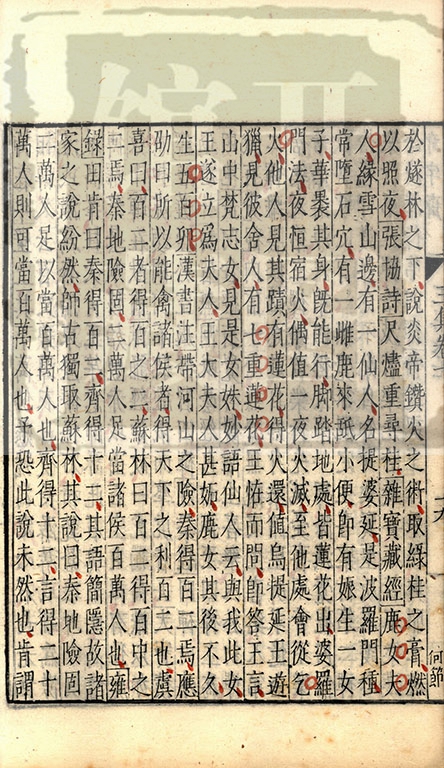 於燧林之下說炎帝鑽火之術取綠桂之膏燃
以照夜張協詩尺燼重尋桂雜寶藏經鹿女夫
人緣雪山邊有一仙人名提婆延是波羅門種
常墮石宂有一雌鹿來䑛小便即有娠生一女
子華褁其身旣能行脚踏地處皆蓮花出婆羅
門法夜恒宿火偶值一夜火滅至他處會從乞
火他人見其蹟有蓮花得火還值烏提延王遊
獵見彼舍人有七重蓮夜王恠而問即答王言
山中梵志女見是女妹妙語仙人云與我此女
王遂立爲夫人王大夫人甚妬鹿女其後不久
生五百卵漢書注帶河山之險秦得百二焉應
劭曰所以能禽諸侯者得天下之利百二也虞
喜曰百二者得百之二蘇林曰百二得百中之
二焉秦地險固二萬人足當諸侯百萬人也雍
錄田肯曰秦得百二齊得十二其語簡隱故諸
家之說紛然師古獨取蘇林其說曰秦地險固
二萬人足以當百萬人也齊得十二言得二十
萬人則可當百萬人也予恐此說未然也肯謂
何節